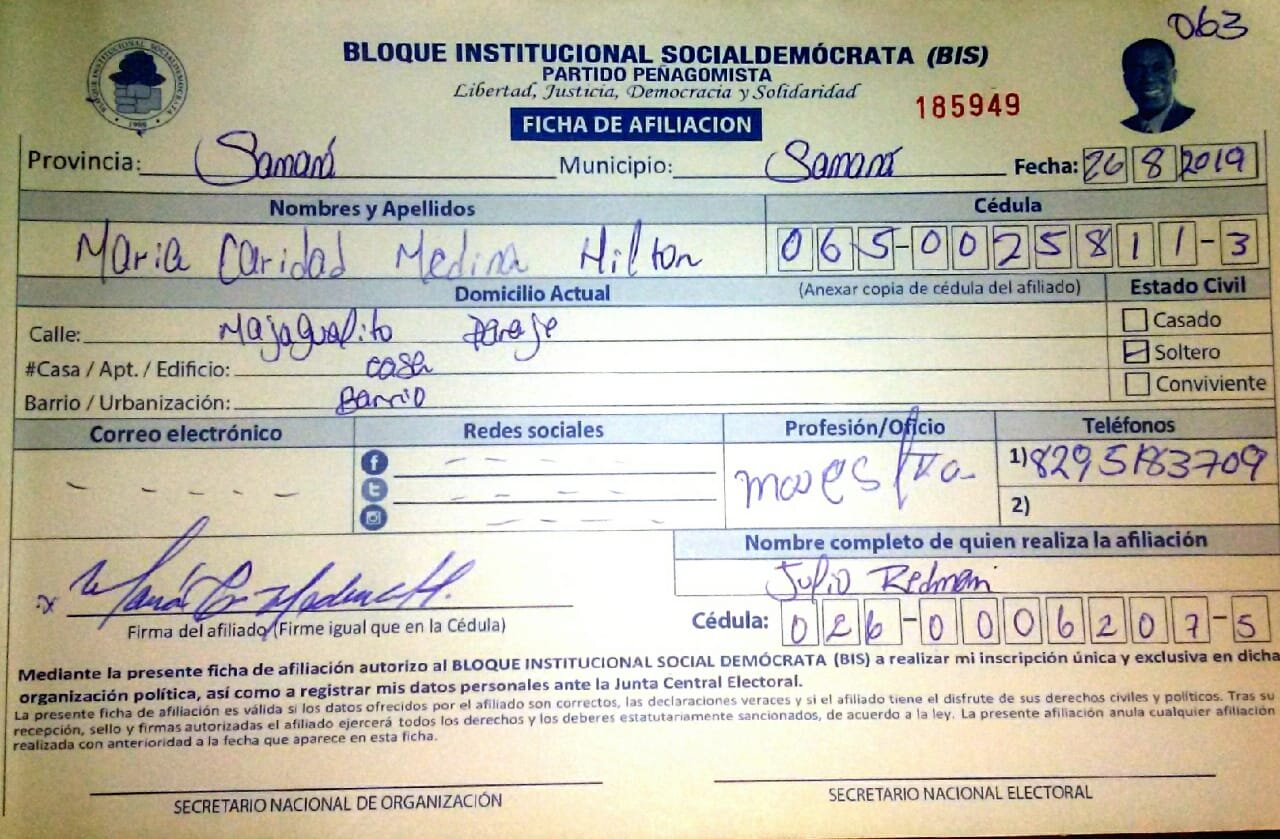 063
BLOQUE INSTITUCIONAL SOCIALDEMÓCRATA (BIS)
PARTIDO PEÑAGOMISTA
Libertad, Justicia, Democracia y Solidaridad
185949
FICHA DE AFILIACION
Provincia: Samaná Municipio: Samaná Fecha: 26 8 2019
Nombres y Apellidos Cédula
Maria Caridad Medina Hilton 065-0025811-3
Domicilio Actual (Anexar copia de cédula del afiliado) Estado Civil
Calle: Majagualito Paraje Casado
#Casa / Apt. / Edificio: casa Soltero
Barrio / Urbanización: Barrio Conviviente
Correo electrónico Redes sociales Profesión/Oficio Teléfonos
maestra 1) 8295183709
2)
Nombre completo de quien realiza la afiliación
Julio Redman
Firma del afiliado (Firme igual que en la Cédula) Cédula: 026-0006207-5
Mediante la presente ficha de afiliación autorizo al BLOQUE INSTITUCIONAL SOCIAL DEMÓCRATA (BIS) a realizar mi inscripción única y exclusiva en dicha
organización política, así como a registrar mis datos personales ante la Junta Central Electoral.
La presente ficha de afiliación es válida si los datos ofrecidos por el afiliado son correctos, las declaraciones veraces y si el afiliado tiene el disfrute de sus derechos civiles y políticos. Tras su
recepción, sello y firmas autorizadas el afiliado ejercerá todos los derechos y los deberes estatutariamente sancionados, de acuerdo a la ley. La presente afiliación anula cualquier afiliación
realizada con anterioridad a la fecha que aparece en esta ficha.
SECRETARIO NACIONAL DE ORGANIZACIÓN SECRETARIO NACIONAL ELECTORAL